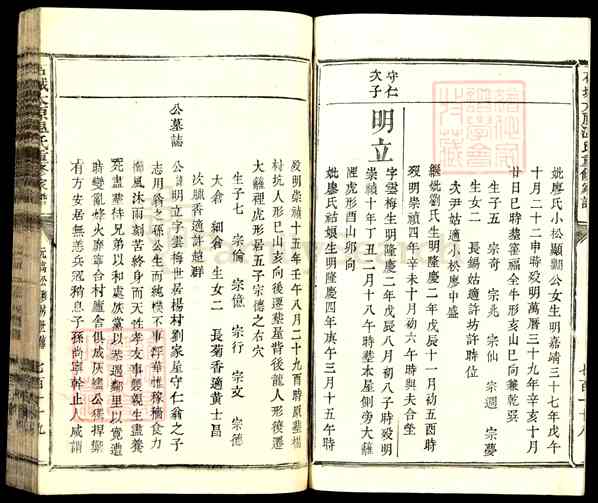 妣廖氏小松顯觀公女生明嘉靖三十七年戊午
十月二十二申時歿明萬曆三十九年辛亥十月
廿日巳時葬霍福全牛形亥山巳向兼乾巽
生子五 宗奇 宗兆 宗仙 宗週 宗夢
生女二 長錫姑適許坊許時位
次尹姑適小松廖中盛
繼妣劉氏生明隆慶二年戊辰十一月初五酉時
歿明崇禎四年辛未十月初六午時與夫合塋
守仁次子
明立
字雲梅生明隆慶二年戊辰八月初八子時歿明
崇禎十年丁丑二月十八午時葬本屋側旁大籬
裡虎形酉山卯向
妣廖氏祐娘生明隆慶四年庚午三月十五午時
歿明崇禎十五年壬午八月二十九酉時原葬楊
村坑人形巳山亥向後遷葬屋背後龍人形後遷
大籬裡虎形居五子宗德之右穴
生子七 宗倫 宗億 宗行 宗文 宗德
大倉 細倉 生女二 長菊香適黃士昌
次臘香適許超群
公墓誌
公諱明立字雲梅世居楊村劉家屋守仁翁之子
志用翁之孫公生而純樸不事浮華惟稼穡食力
櫛風沐雨刻苦終身而天性孝友事親生盡養
死盡葬待兄弟以和處族黨以恭遇鄰里以寬遭
時變亂烽火靡寧合村廬舍俱成灰燼公獲捍禦
有方安居無恙兵冠稍息子孫尚寧幹止人咸謂
七百一十九